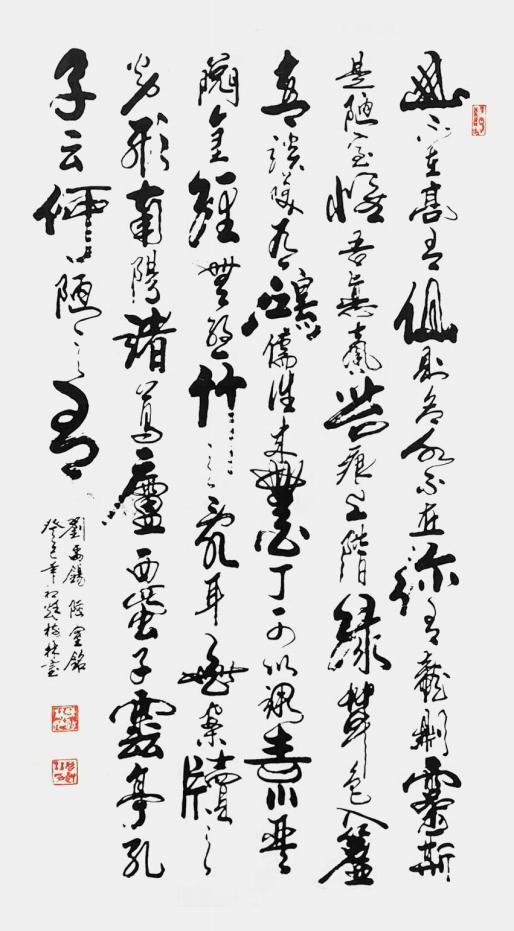 山不在高有仙則名水不在深有龍則靈斯
是陋室惟吾德馨苔痕上階綠草色入簾
青談笑有鴻儒往來無白丁可以調素琴
閱金經無絲竹之亂耳無案牘之
勞形南陽諸葛廬西蜀子雲亭孔
子云何陋之有
劉禹錫陋室銘
癸巳年初梅林書